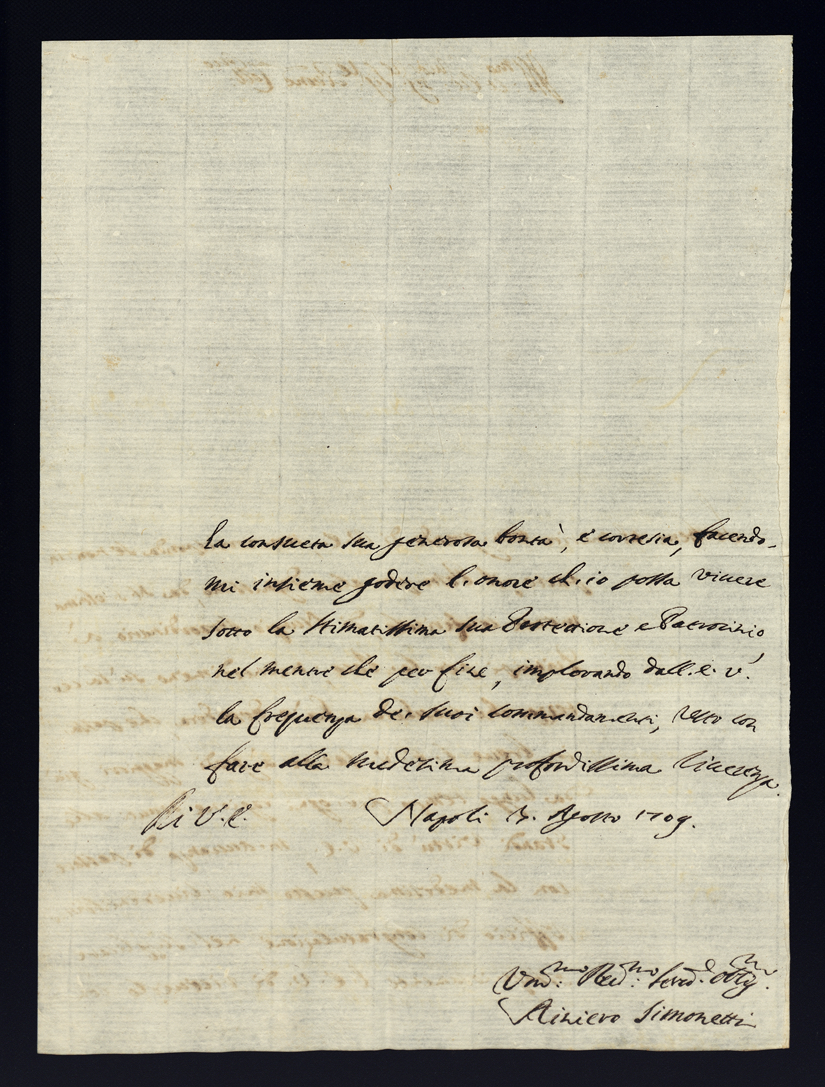 la consueta sua generosa bontà, e cortesia, facendo-
mi insieme godere l'onore ch'io possa vivere
sotto la stimatissima sua Protettione e Patrocinio,
nel mentre che per fine, implorando dall'E. V.
la frequenza de' suoi commandamenti, resto con
fare alla medesima profondissima riverenza.
Di V. E. Napoli 3. Agosto 1709.
Dev.mo Serv.
Riniero Simonetti